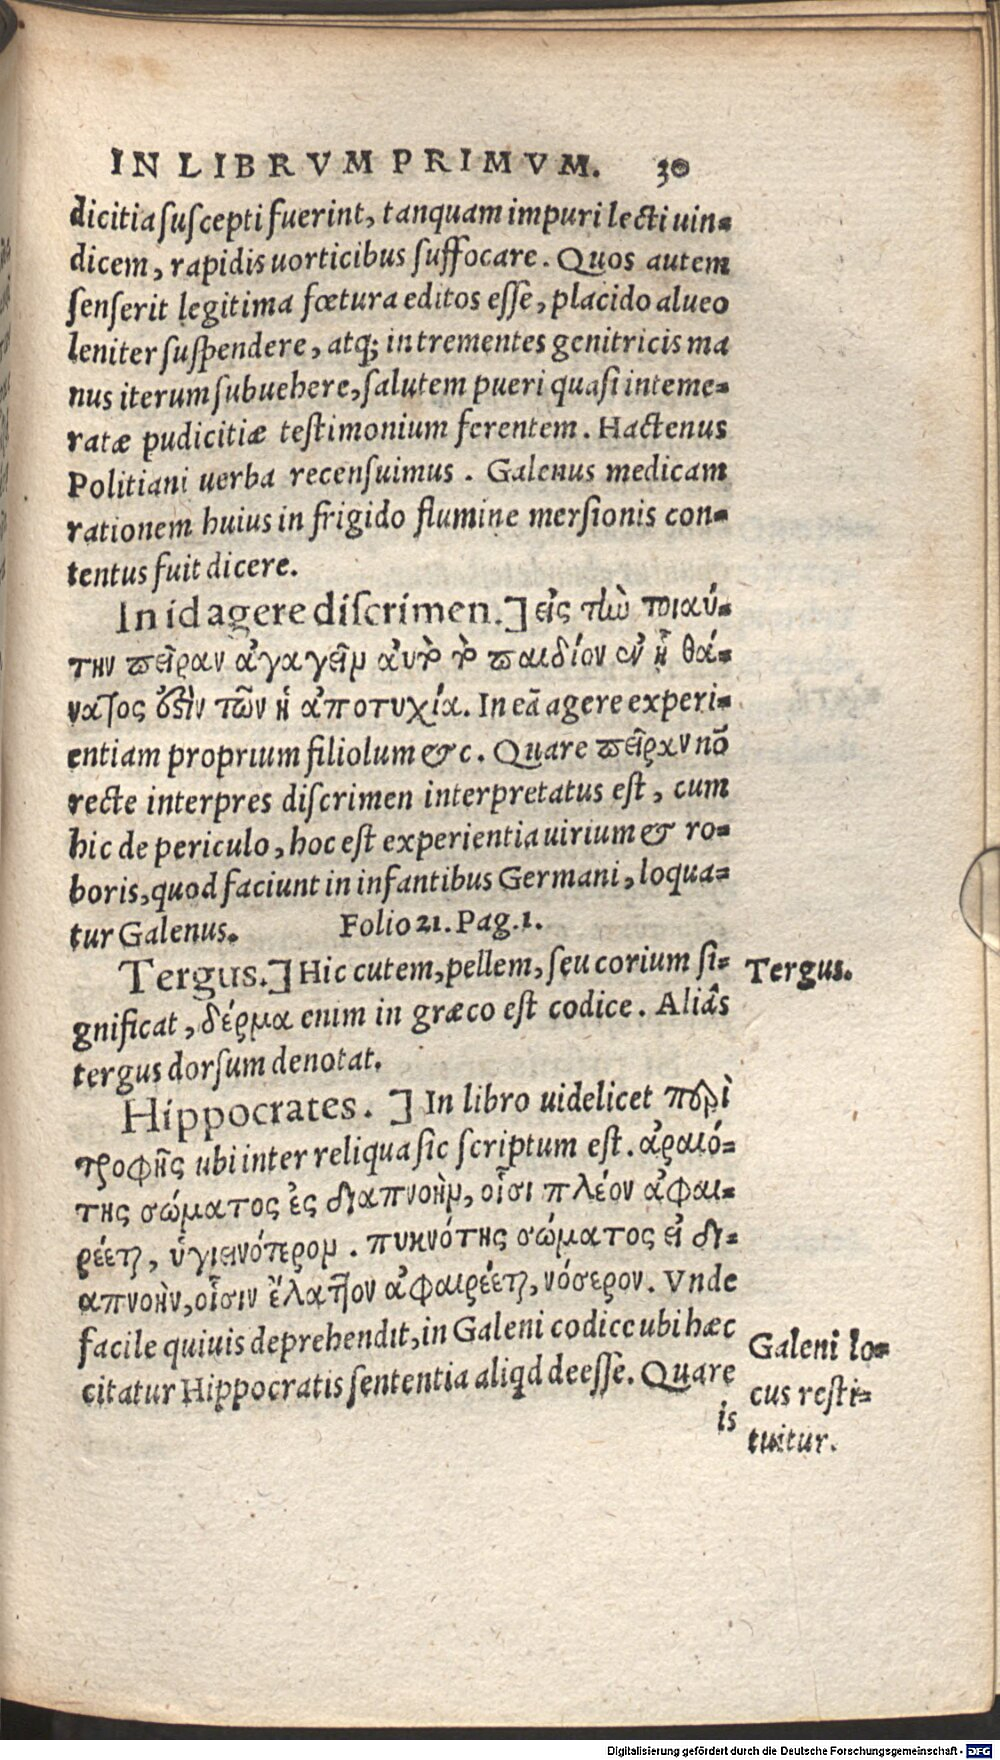 IN LIBRVM PRIMVM. 30
dicitia suscepti fuerint, tanquam impuri lecti uin-
dicem, rapidis uorticibus suffocare. Quos autem
senserit legitima fœtura editos esse, placido alueo
leniter suspendere, atq; intrementes genitricis ma
nus iterum subuehere, salutem pueri quasi inteme-
ratæ pudicitiæ testimonium ferentem. Hactenus
Politiani uerba recensuimus. Galenus medicam
rationem huius in frigido flumine mersionis con-
tentus fuit dicere.
In id agere discrimen.] εἰς τὴν τοιαύ-
την πεῖραν ἀγαγεῖν αὐτὸ τὸ παιδίον ἐν ᾗ θά-
νατος ἐστὶν τῶν ἡ ἀποτυχία. In eā agere experi-
entiam proprium filiolum &c. Quare πεῖραν nō
recte interpres discrimen interpretatus est, cum
hic de periculo, hoc est experientia uirium & ro-
boris, quod faciunt in infantibus Germani, loqua-
tur Galenus. Folio 21. Pag. 1.
Tergus.] Hic cutem, pellem, seu corium si-
gnificat, δέρμα enim in græco est codice. Aliâs
tergus dorsum denotat.
Tergus.
Hippocrates. ] In libro uidelicet περὶ
τροφῆς ubi inter reliqua sic scriptum est. ἀραιό-
της σώματος ἐς διαπνοὴν, οἷσι πλέον ἀφαι-
ρέεται, ὑγιεινότερον. πυκνότης σώματος εἰ δι-
απνοὴν, οἷσιν ἔλαττον ἀφαιρέεται, νόσερον. Vnde
facile quiuis deprehendit, in Galeni codice ubi hæc
citatur Hippocratis sententia aliqd deesse. Quare
is
Galeni lo-
cus resti-
tuitur.
Digitalisierung gefördert durch die Deutsche Forschungsgemeinschaft - DFG